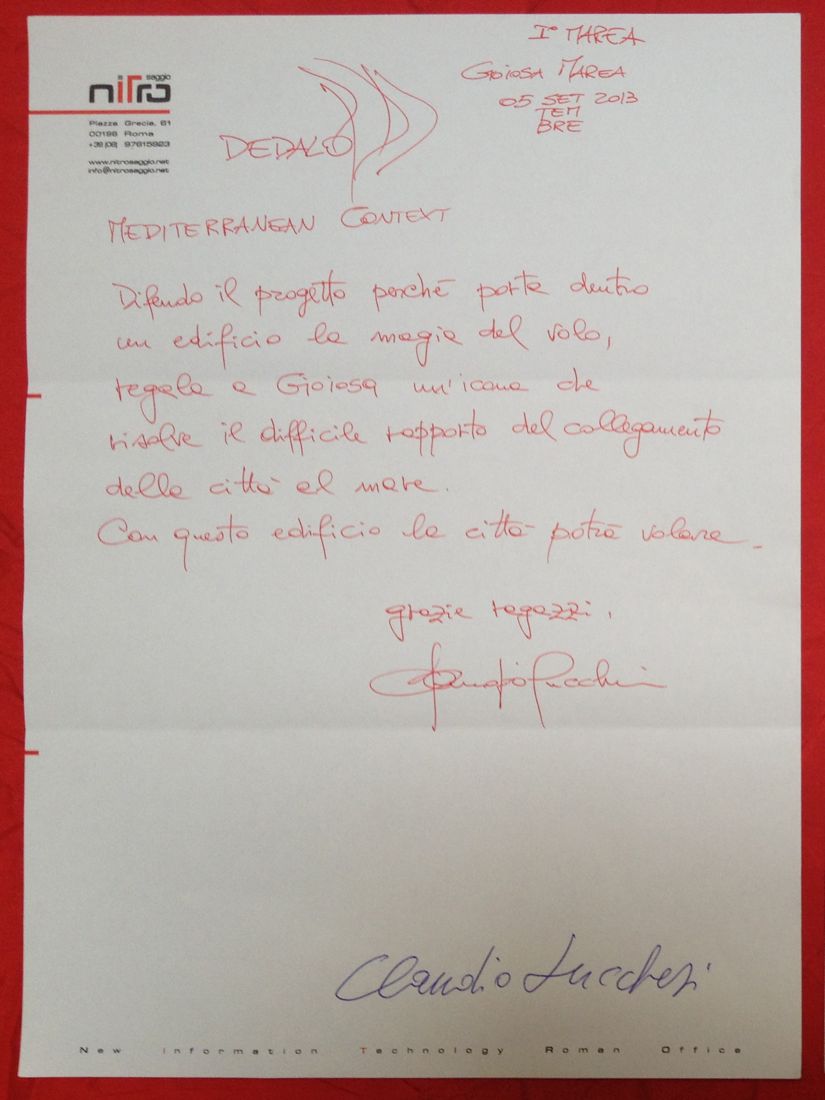 Iª MAREA
GIOIOSA MAREA
05 SET 2013
TEM
BRE
is saggio
nITro
Piazza Grecia, 61
00196 Roma
+39 (06) 97615923
www.nitrosaggio.net
info@nitrosaggio.net
DEDALO
MEDITERRANEAN CONTEXT
Difendo il progetto perché porta dentro
un edificio la magia del volo,
regala a Gioiosa un'icona che
risolve il difficile rapporto del collegamento
della città al mare.
Con questo edificio la città potrà volare.
grazie ragazzi.
Claudio Lucchesi
Claudio Lucchesi
New Information Technology Roman Office